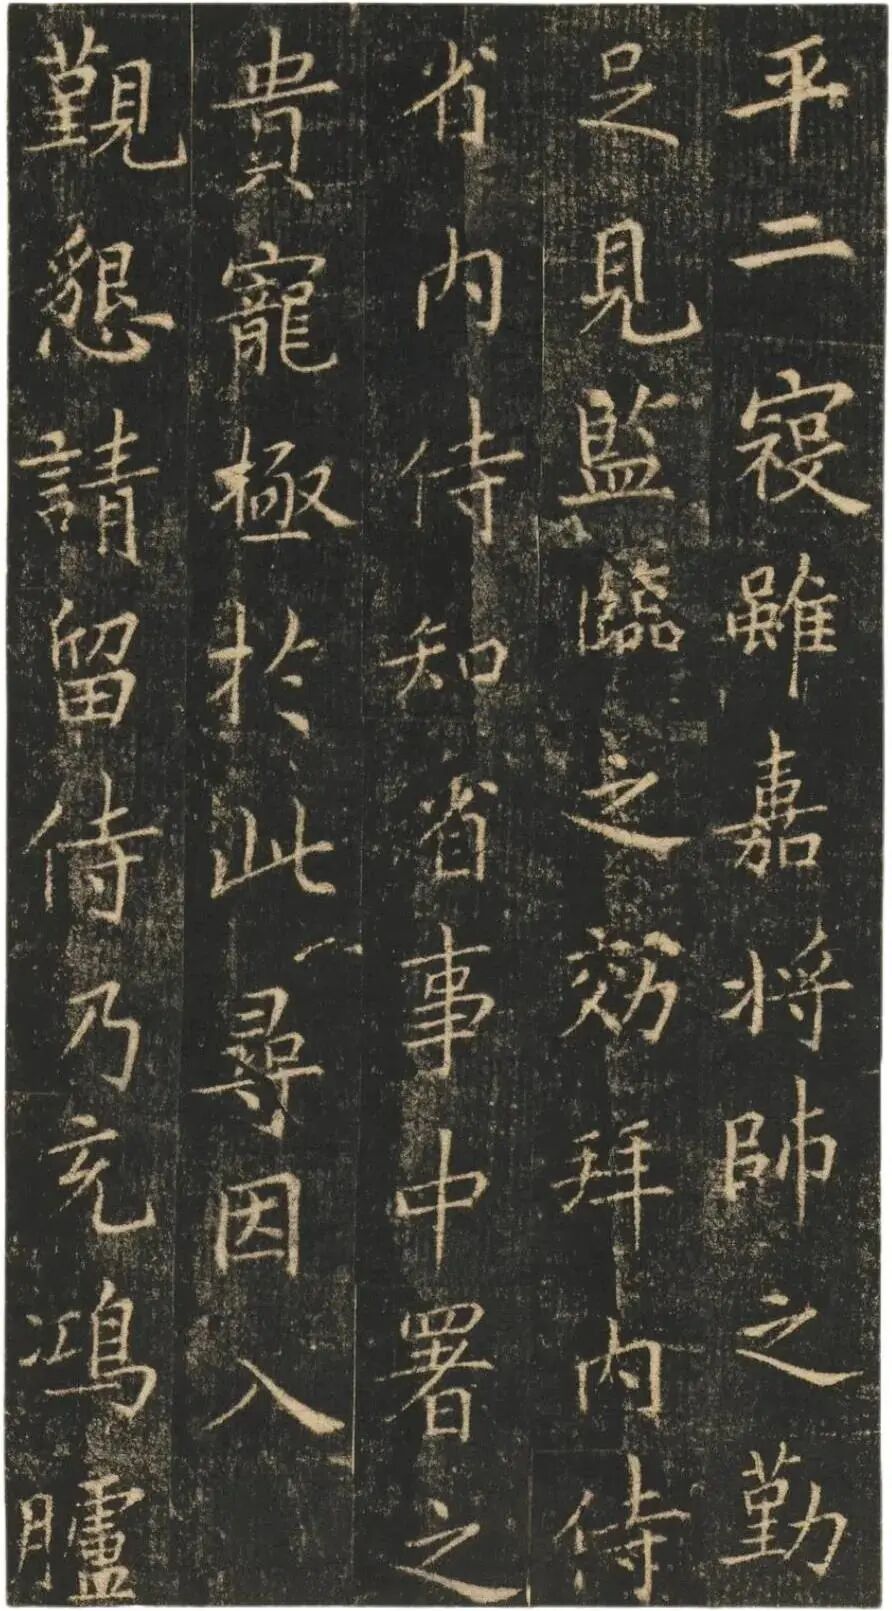 平二寇雖嘉將帥之勤
足見監臨之効拜内侍
省内侍知省事中署之
貴寵極於此尋因入
覲懇請留侍乃充鴻臚